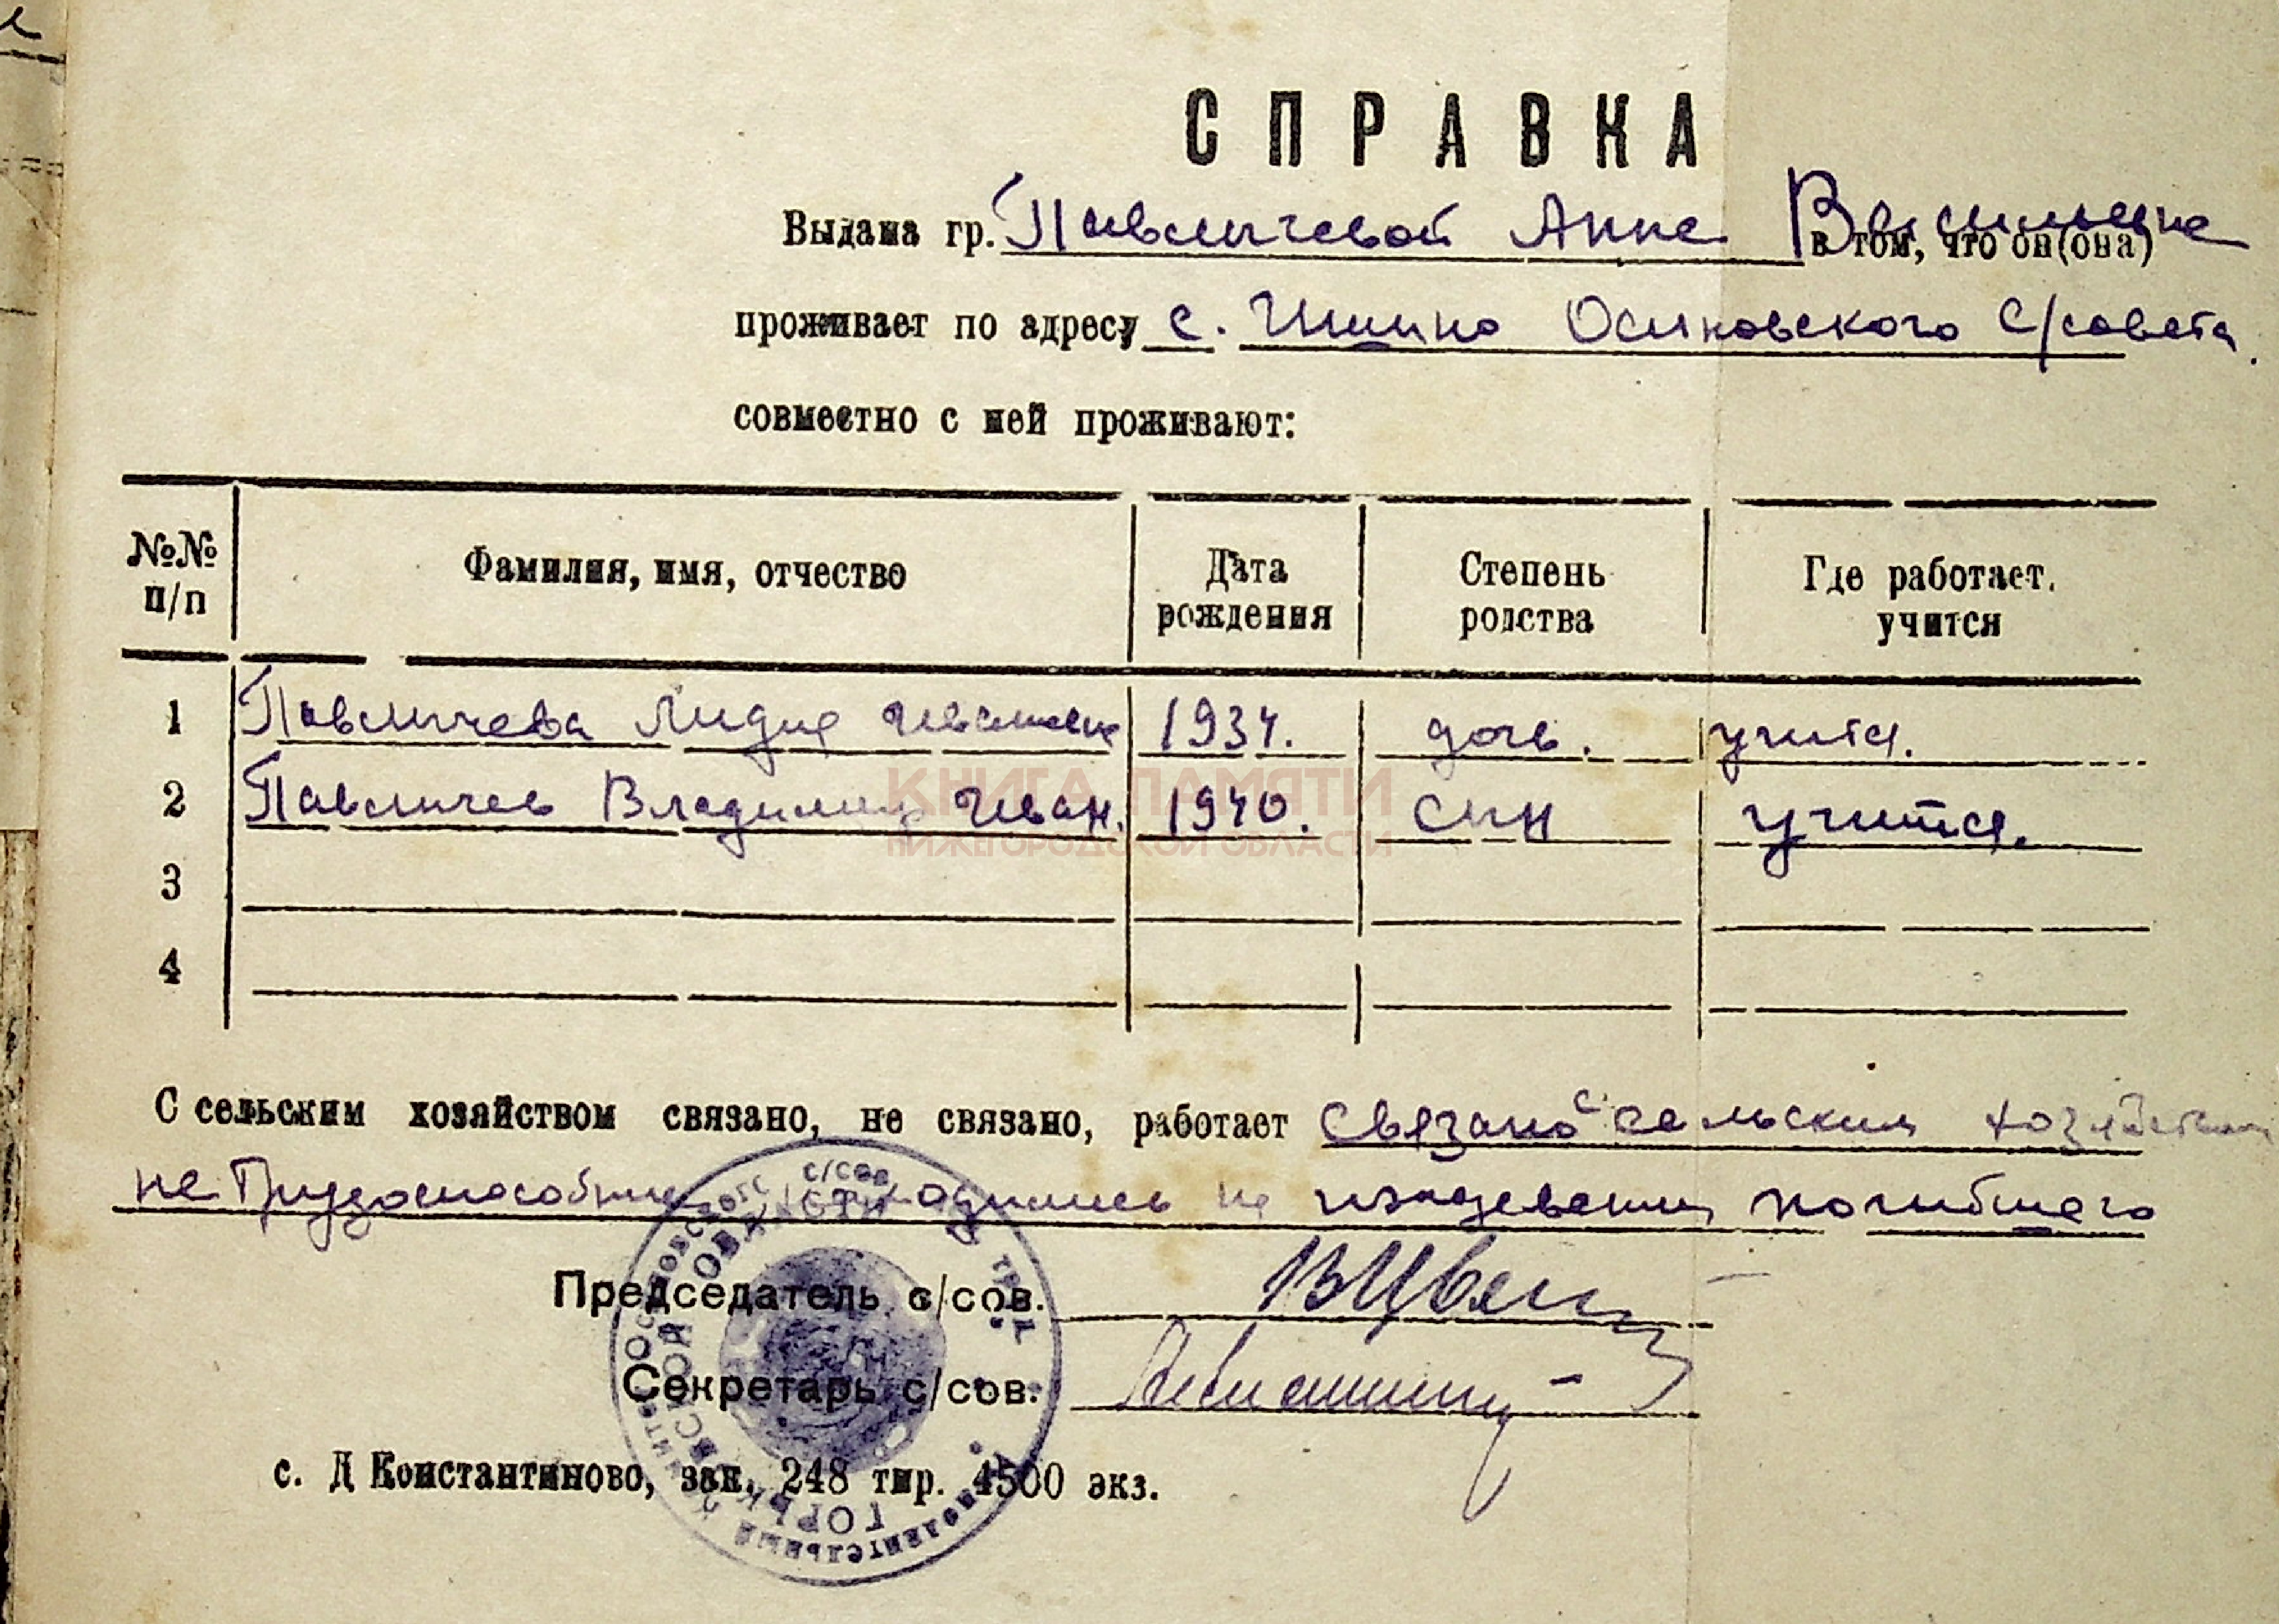 СПРАВКА
Выдана гр. Павлычевой Анне Васильевне
в том, что он(она)
проживает по адресу с. Осиновского с/совета.
совместно с ней проживают:
№№ п/п Фамилия, имя, отчество Дата рождения Степень родства Где работает, учится
1 Павлычева Лидия Ивановна 1934. дочь. учится.
2 Павлычев Владимир Иван. 1940. сын учится.
3
4
КНИГА ПАМЯТИ
НИЖЕГОРОДСКОЙ ОБЛАСТИ
С сельским хозяйством связано, не связано, работает связано с сельским хозяйством
не трудоспособные находились на иждевении погибшего
Председатель с/сов.
Секретарь с/сов.
с. Д Константиново, зак. 248 тир. 4500 экз.